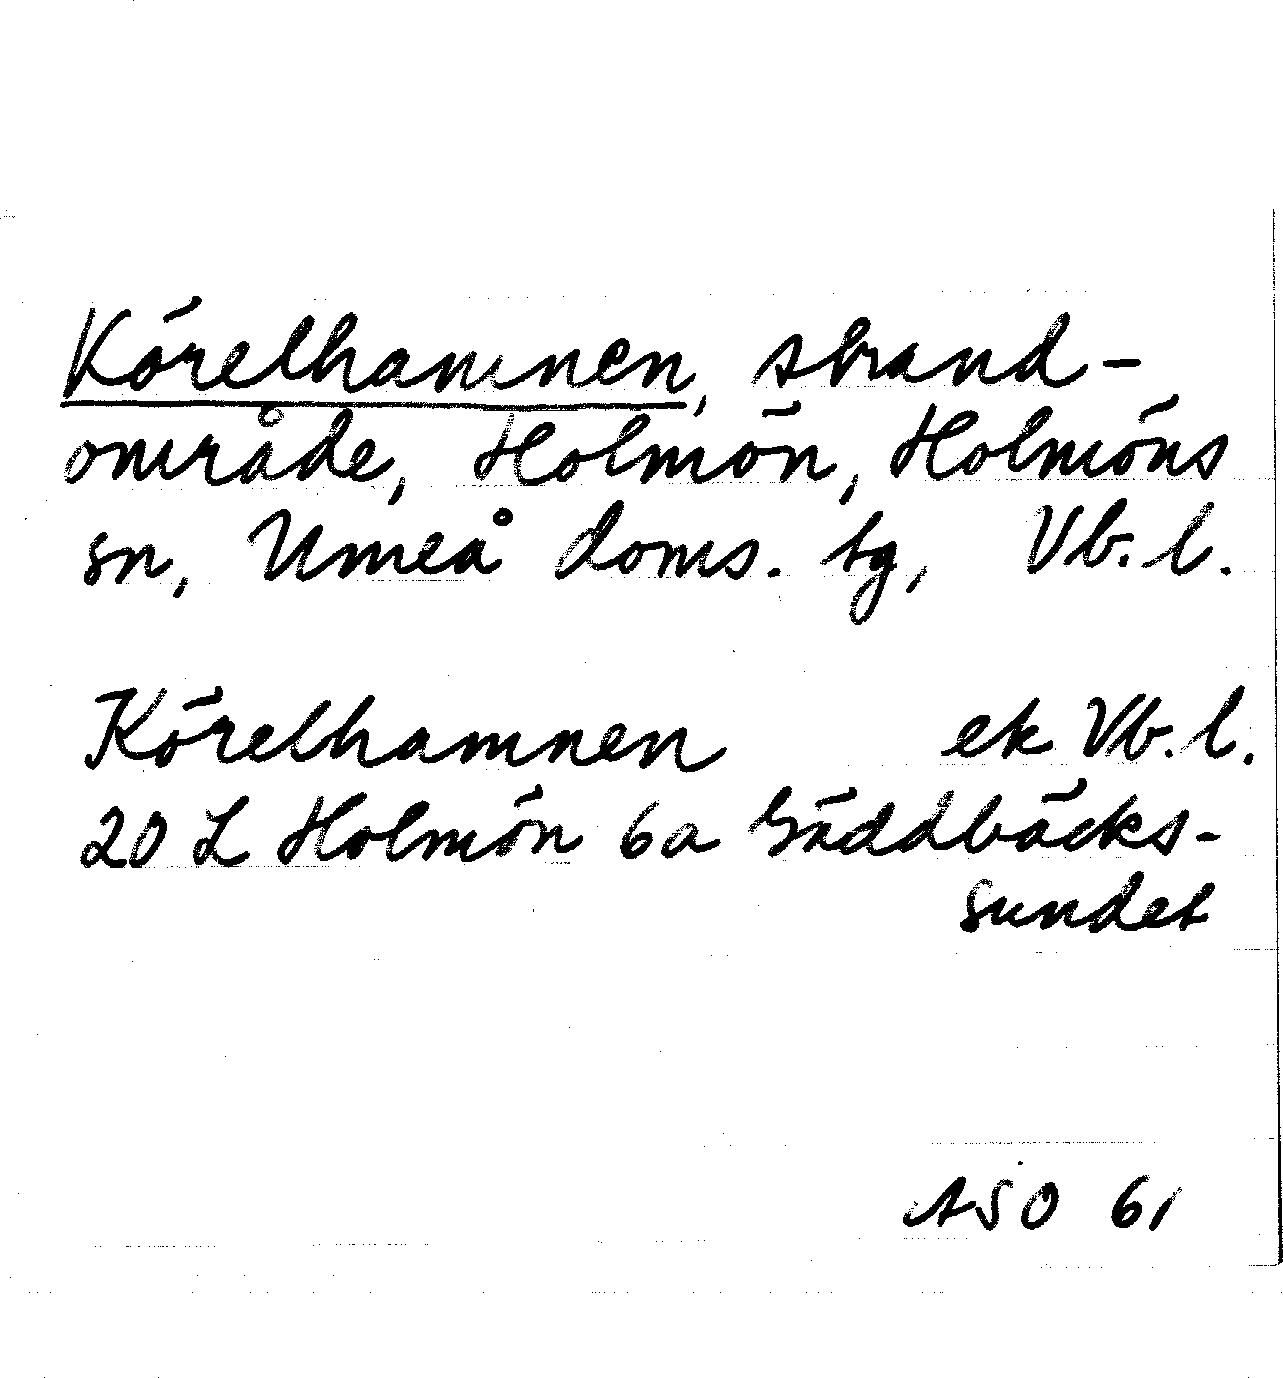 Körelhamnen, strand-
område, Holmön, Holmöns
sn, Umeå doms. tg, Vb. l.
Körelhamnen ek Vb. l.
20 L Holmön 6a Gäddbäcks-
sundet
ASO 61